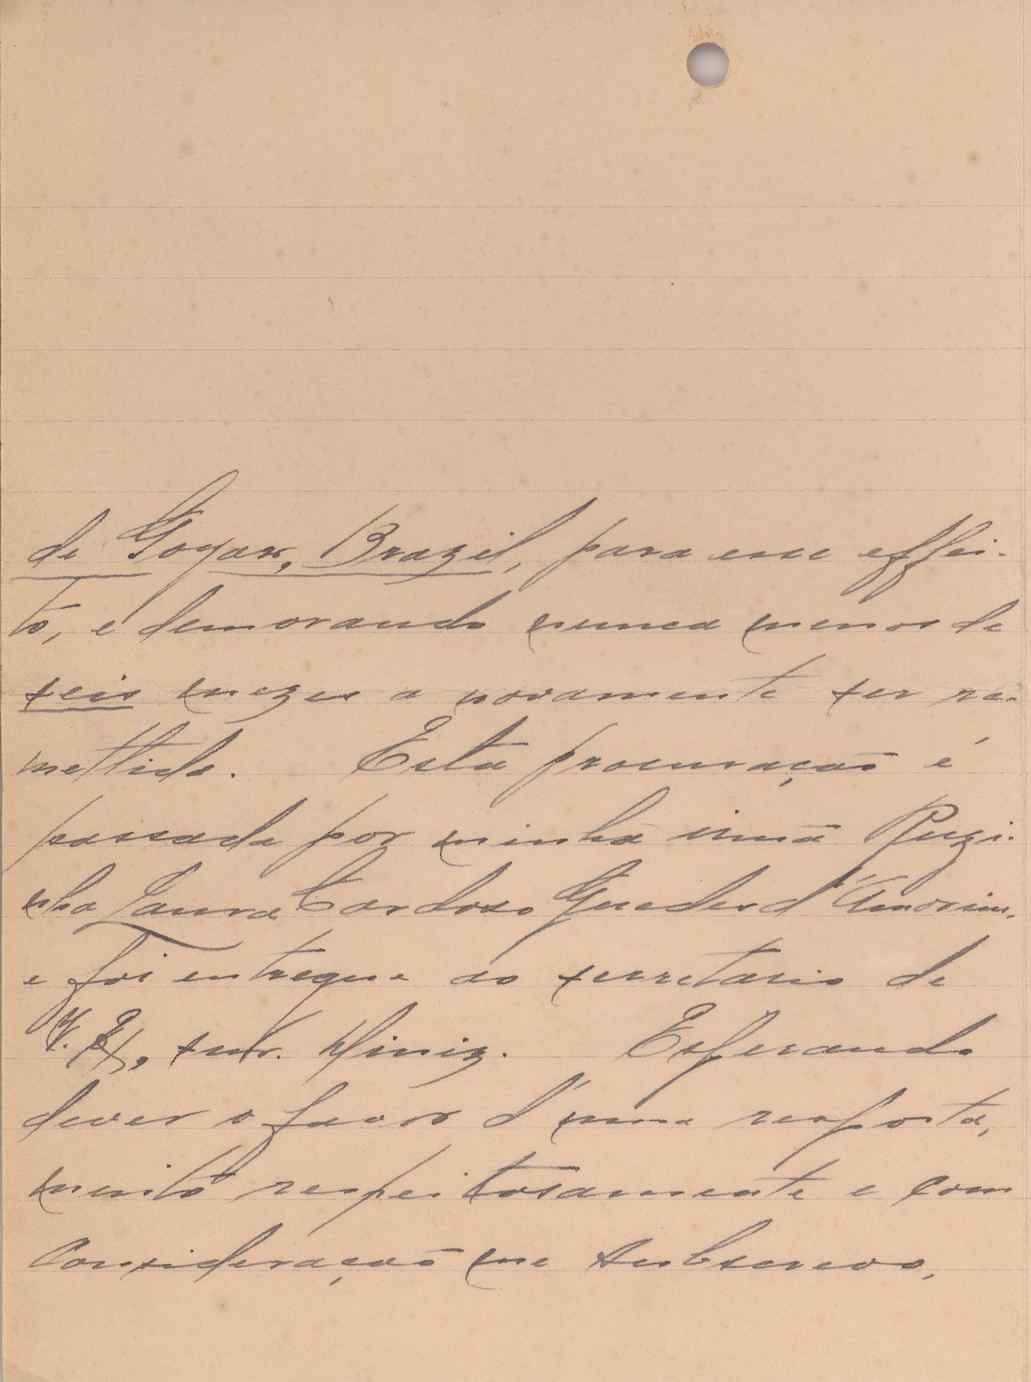 de Goyaz, Brazil, para esse effei-
to, e demorando nunca menos de
seis mezes a novamente ser re-
mettido. Esta procuração é
passada por minha irmã Ruzi-
nha Laura Cardoso Guedes d'Amorim,
e foi entregue ao secretario de
V. E., snr. Diniz. Esperando
dever o favor d'uma resposta,
muito respeitosamente e com
consideração me subscrevo,